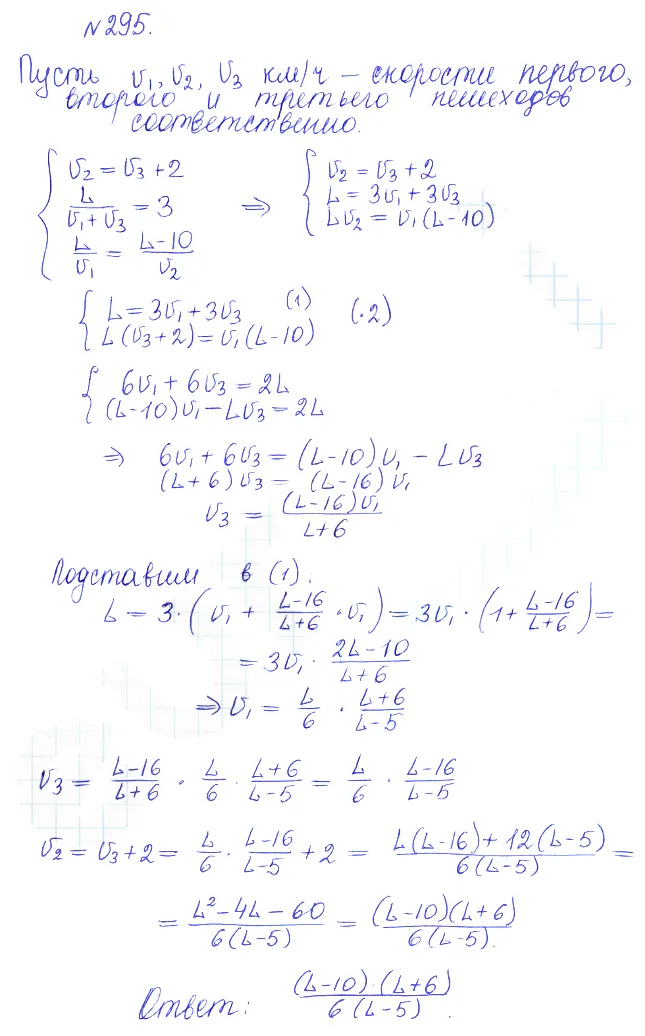 №295.
Пусть υ₁, υ₂, υ₃ км/ч – скорости первого,
второго и третьего пешеходов
соответственно.
{ υ₂ = υ₃ + 2 ; L/(υ₁ + υ₃) = 3 ; L/υ₁ = (L-10)/υ₂ ⇒ { υ₂ = υ₃ + 2 ; L = 3υ₁ + 3υ₃ ; Lυ₂ = υ₁(L-10)
{ L = 3υ₁ + 3υ₃ (1) (·2)
L(υ₃+2) = υ₁(L-10)
{ 6υ₁ + 6υ₃ = 2L
(L-10)υ₁ - Lυ₃ = 2L
⇒ 6υ₁ + 6υ₃ = (L-10)υ₁ - Lυ₃
(L+6)υ₃ = (L-16)υ₁
υ₃ = (L-16)υ₁/(L+6)
Подставим в (1).
L = 3·(υ₁ + (L-16)/(L+6) · υ₁) = 3υ₁·(1 + (L-16)/(L+6)) =
= 3υ₁ · (2L-10)/(L+6)
⇒ υ₁ = L/6 · (L+6)/(L-5)
υ₃ = (L-16)/(L+6) · L/6 · (L+6)/(L-5) = L/6 · (L-16)/(L-5)
υ₂ = υ₃ + 2 = L/6 · (L-16)/(L-5) + 2 = (L(L-16) + 12(L-5))/(6(L-5)) =
= (L² - 4L - 60)/(6(L-5)) = (L-10)(L+6)/(6(L-5)).
Ответ: (L-10)·(L+6)/(6(L-5)).